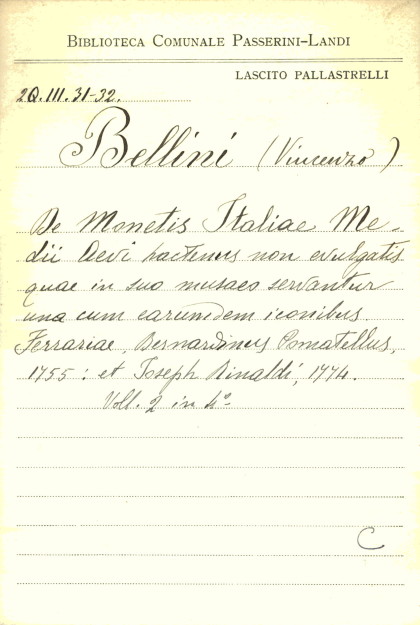 BIBLIOTECA COMUNALE PASSERINI-LANDI
LASCITO PALLASTRELLI
2Q.III.31-32.
Bellini (Vincenzo)
De Monetis Italiae Me-
dii Aevi hactenus non evulgatis
quae in suo musaeo servantur
una cum earumdem iconibus.
Ferrariae, Bernardinus Pomatellus,
1755: et Joseph Rinaldi, 1774.
Voll. 2 in 4°
C